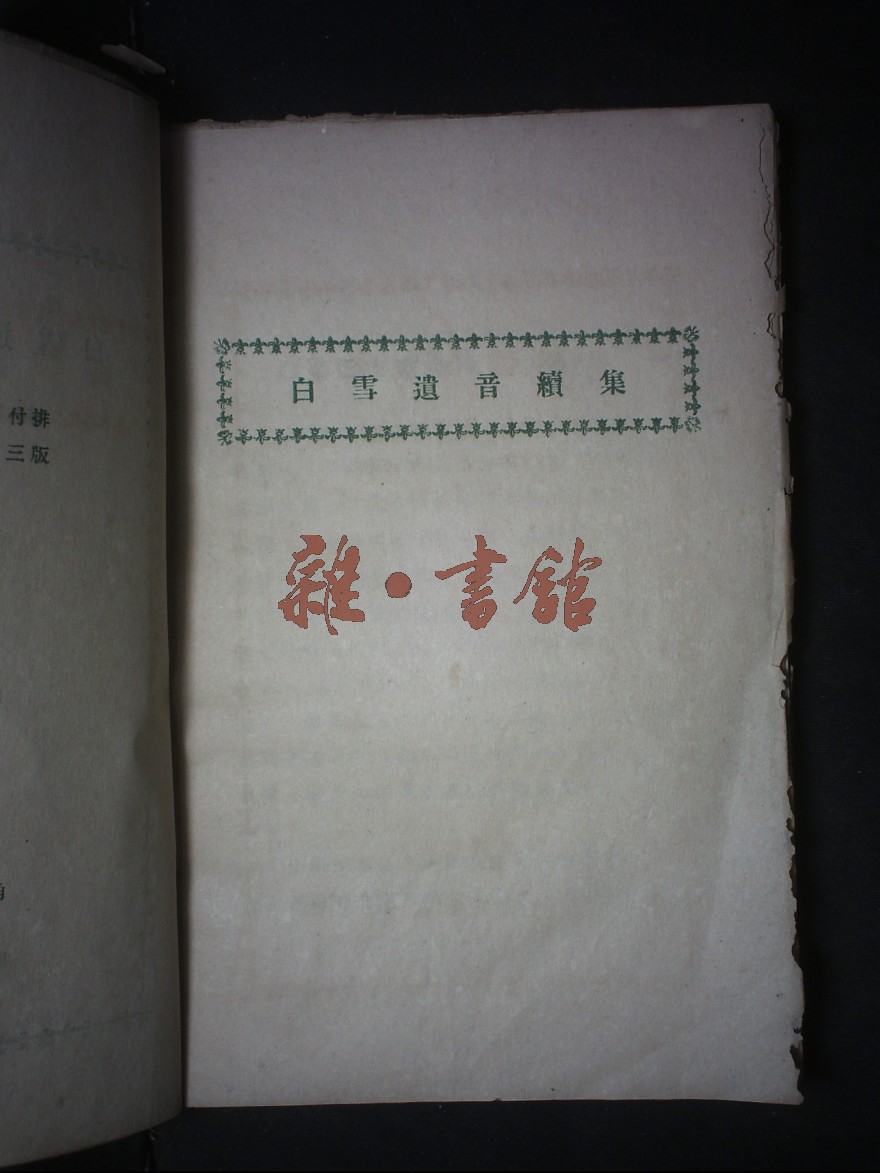 付排
三版
白雪遺音續集
雜·書館